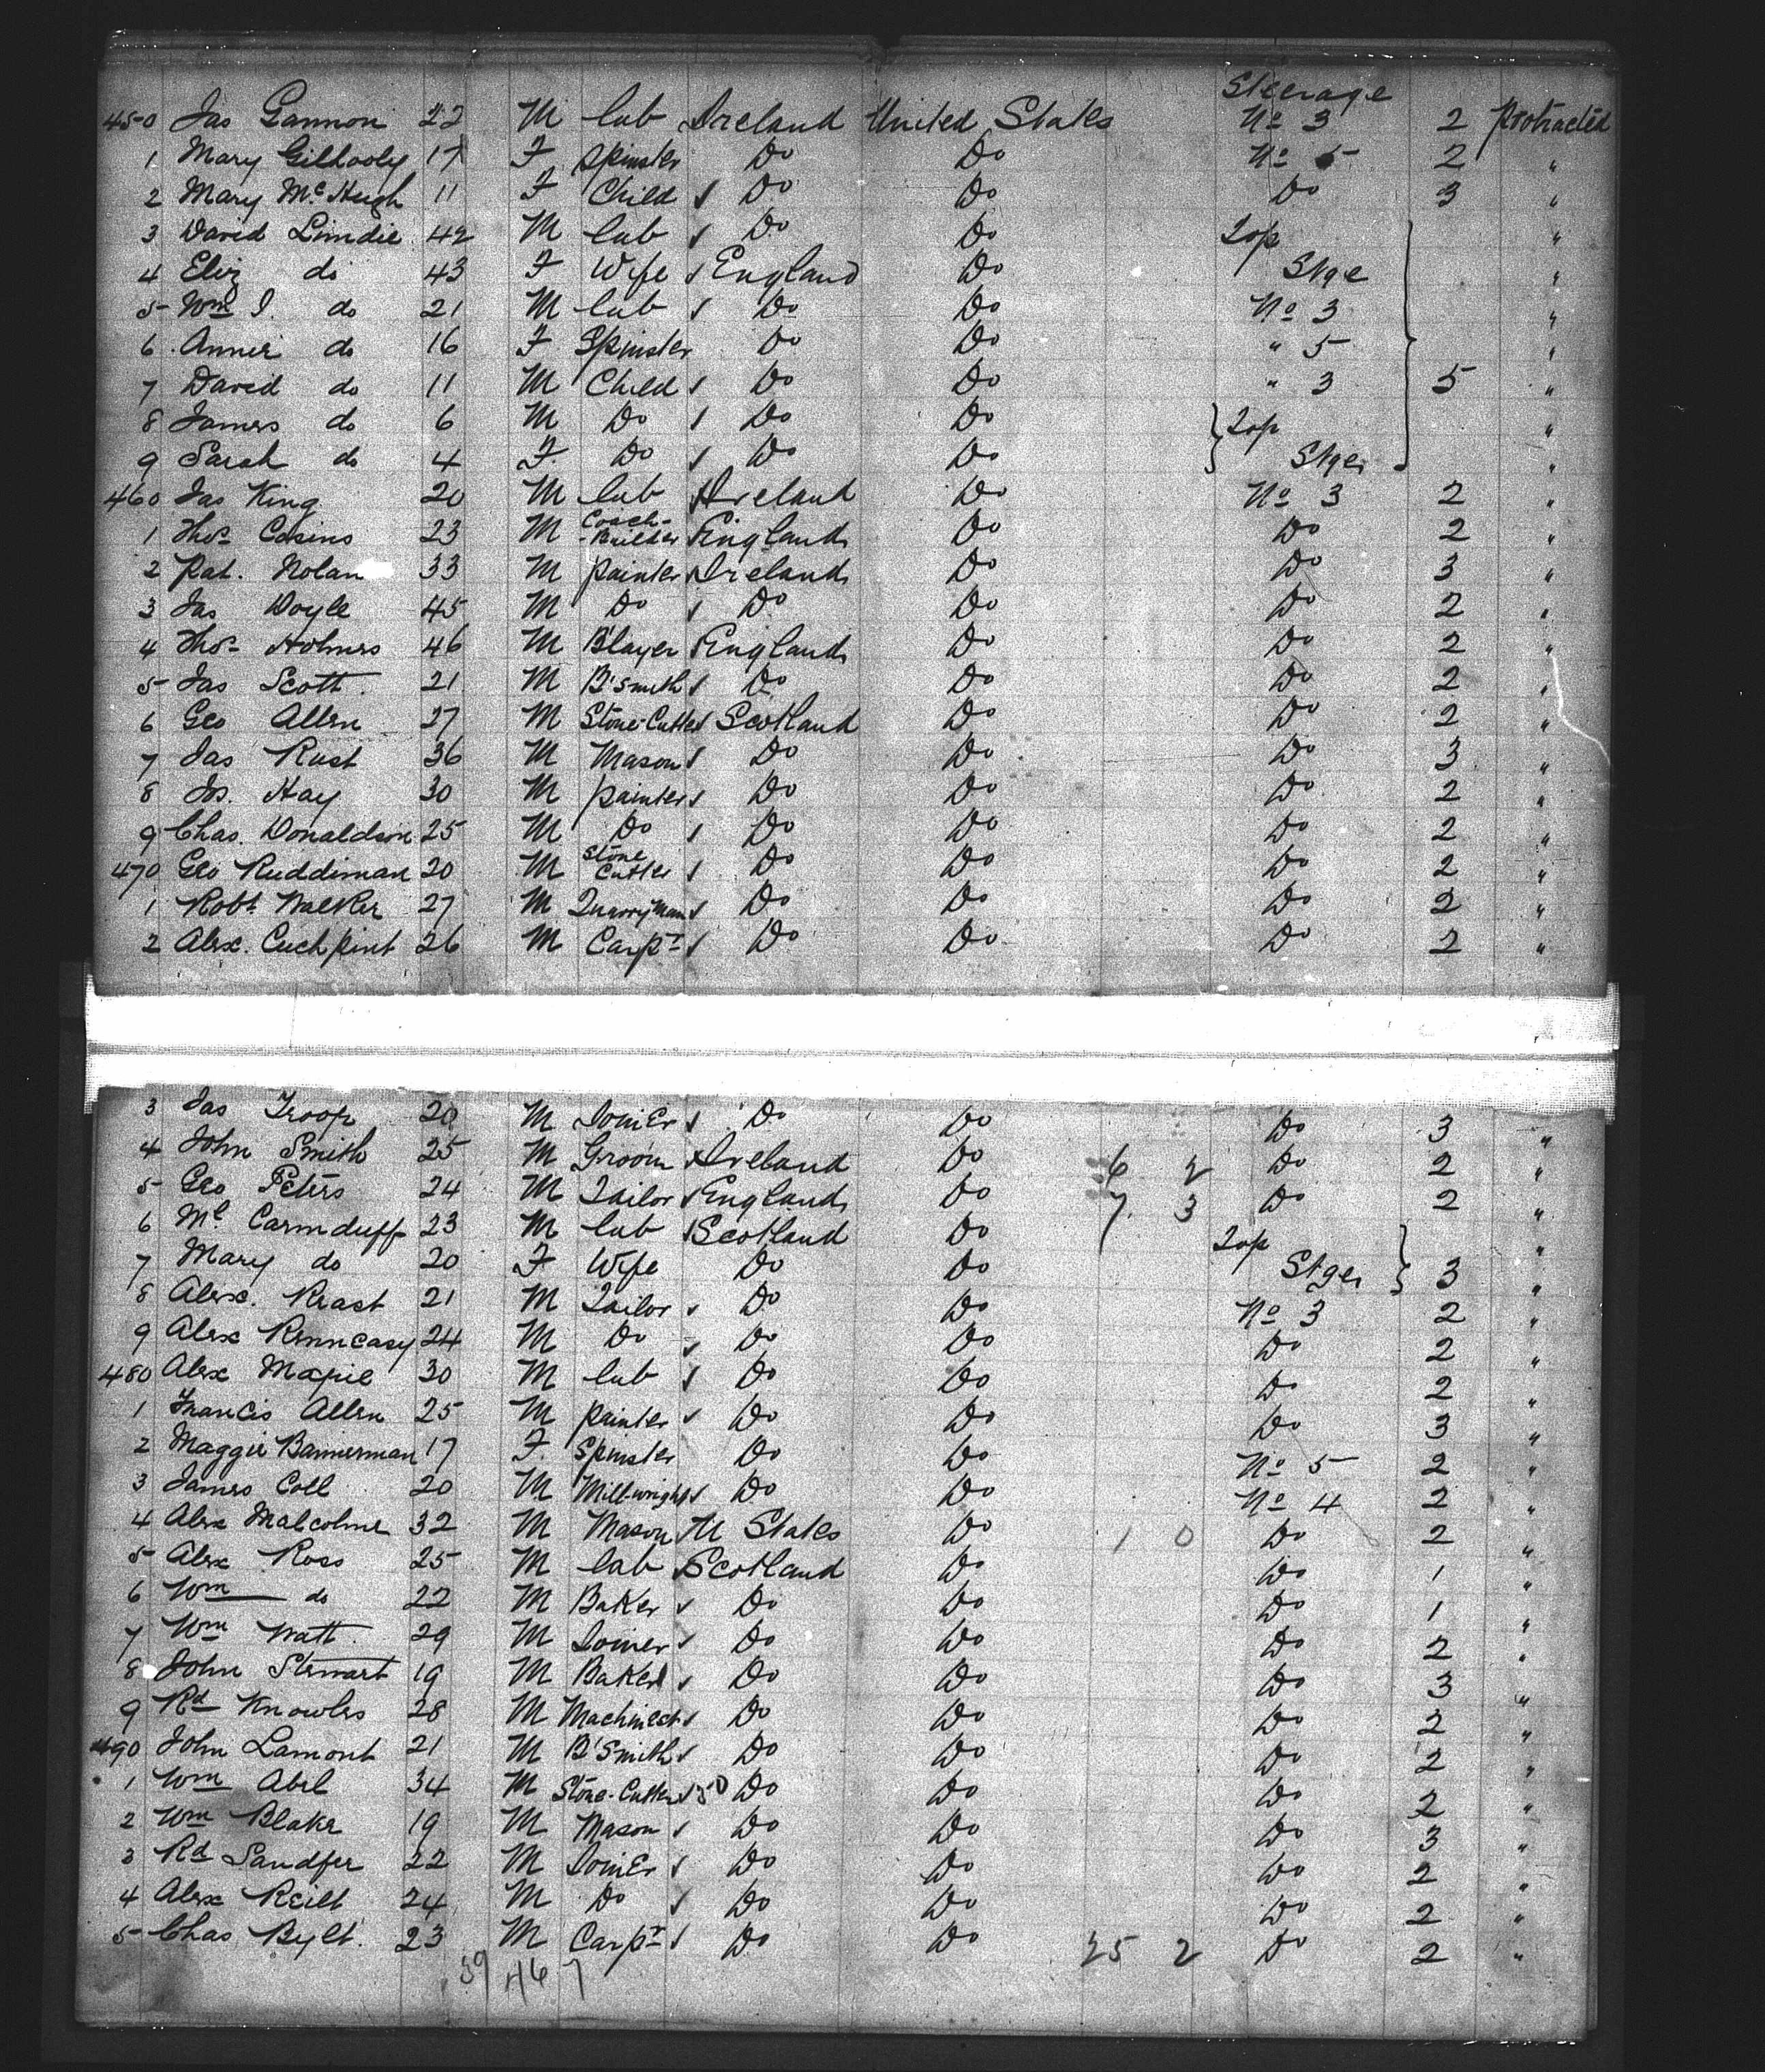 Steerage
450 Jas Gannon 22 M lab Ireland United States No 3 2 Protracted
1 Mary Gilhooly 17 F Spinster Do Do No 5 2 "
2 Mary McHugh 11 F Child Do Do Do 3 "
3 David Limdie 42 M lab Do Do Top "
4 Eliz do 43 F Wife England Do Stge "
5 Wm I. do 21 M lab Do Do No 3 "
6 Annie do 16 F Spinster Do Do " 5 "
7 David do 11 M Child Do Do " 3 5 "
8 James do 6 M Do Do Do Top "
9 Sarah do 4 F. Do Do Do Stge "
460 Jas King 20 M lab Ireland Do No 3 2 "
1 Thos Cosins 23 M Coach-Builder England Do Do 2 "
2 Pat. Nolan 33 M painter Ireland Do Do 3 "
3 Jas Doyle 45 M Do Do Do Do 2 "
4 Thos Holmes 46 M B'layer England Do Do 2 "
5 Jas Scott. 21 M B'Smith Do Do Do 2 "
6 Geo Allen 27 M Stone-Cutter Scotland Do Do 2 "
7 Jas Rust 36 M Mason Do Do Do 3 "
8 Js. Hay 30 M painter Do Do Do 2 "
9 Chas. Donaldson 25 M Do Do Do Do 2 "
470 Geo Ruddiman 20 M Stone Cutter Do Do Do 2 "
1 Robt Walker 27 M Quarryman Do Do Do 2 "
2 Alex. Cuchpint 26 M Carpr Do Do Do 2 "
3 Jas Troop 20 M Joiner Do Do Do 3 "
4 John Smith 25 M Groom Ireland Do 6 2 Do 2 "
5 Geo Peters 24 M Tailor England Do 7. 3 Do 2 "
6 Ml Carmduff 23 M lab Scotland Do Top "
7 Mary do 20 F Wife Do Do Stge 3 "
8 Alex. Reast 21 M Tailor Do Do No 3 2 "
9 Alex Renncasy 24 M Do Do Do Do 2 "
480 Alex Mapie 30 M lab Do Do Do 2 "
1 Francis Allen 25 M painter Do Do Do 3 "
2 Maggie Bannerman 17 F. Spinster Do Do No 5 2 "
3 James Coll 20 M Mill-wright Do Do No 4 2 "
4 Alex Malcolme 32 M Mason U States Do 1 0 Do 2 "
5 Alex Ross 25 M lab Scotland Do Do 1 "
6 Wm do 22 M Baker Do Do Do 1 "
7 Wm Watt. 29 M Joiner Do Do Do 2 "
8 John Stewart 19 M Baker Do Do Do 3 "
9 Rd Knowles 28 M Machinest Do Do Do 2 "
490 John Lamont 21 M B'Smith Do Do Do 2 "
1 Wm Abel 34 M Stone-Cutter Do Do Do 2 "
2 Wm Blake 19 M Mason Do Do Do 3 "
3 Rd Sandfer 22 M Joiner Do Do Do 2 "
4 Alex Reilt 24 M Do Do Do Do 2 "
5 Chas Bylt. 23 M Carpr Do Do 25 2 Do 2 "
39 46 7